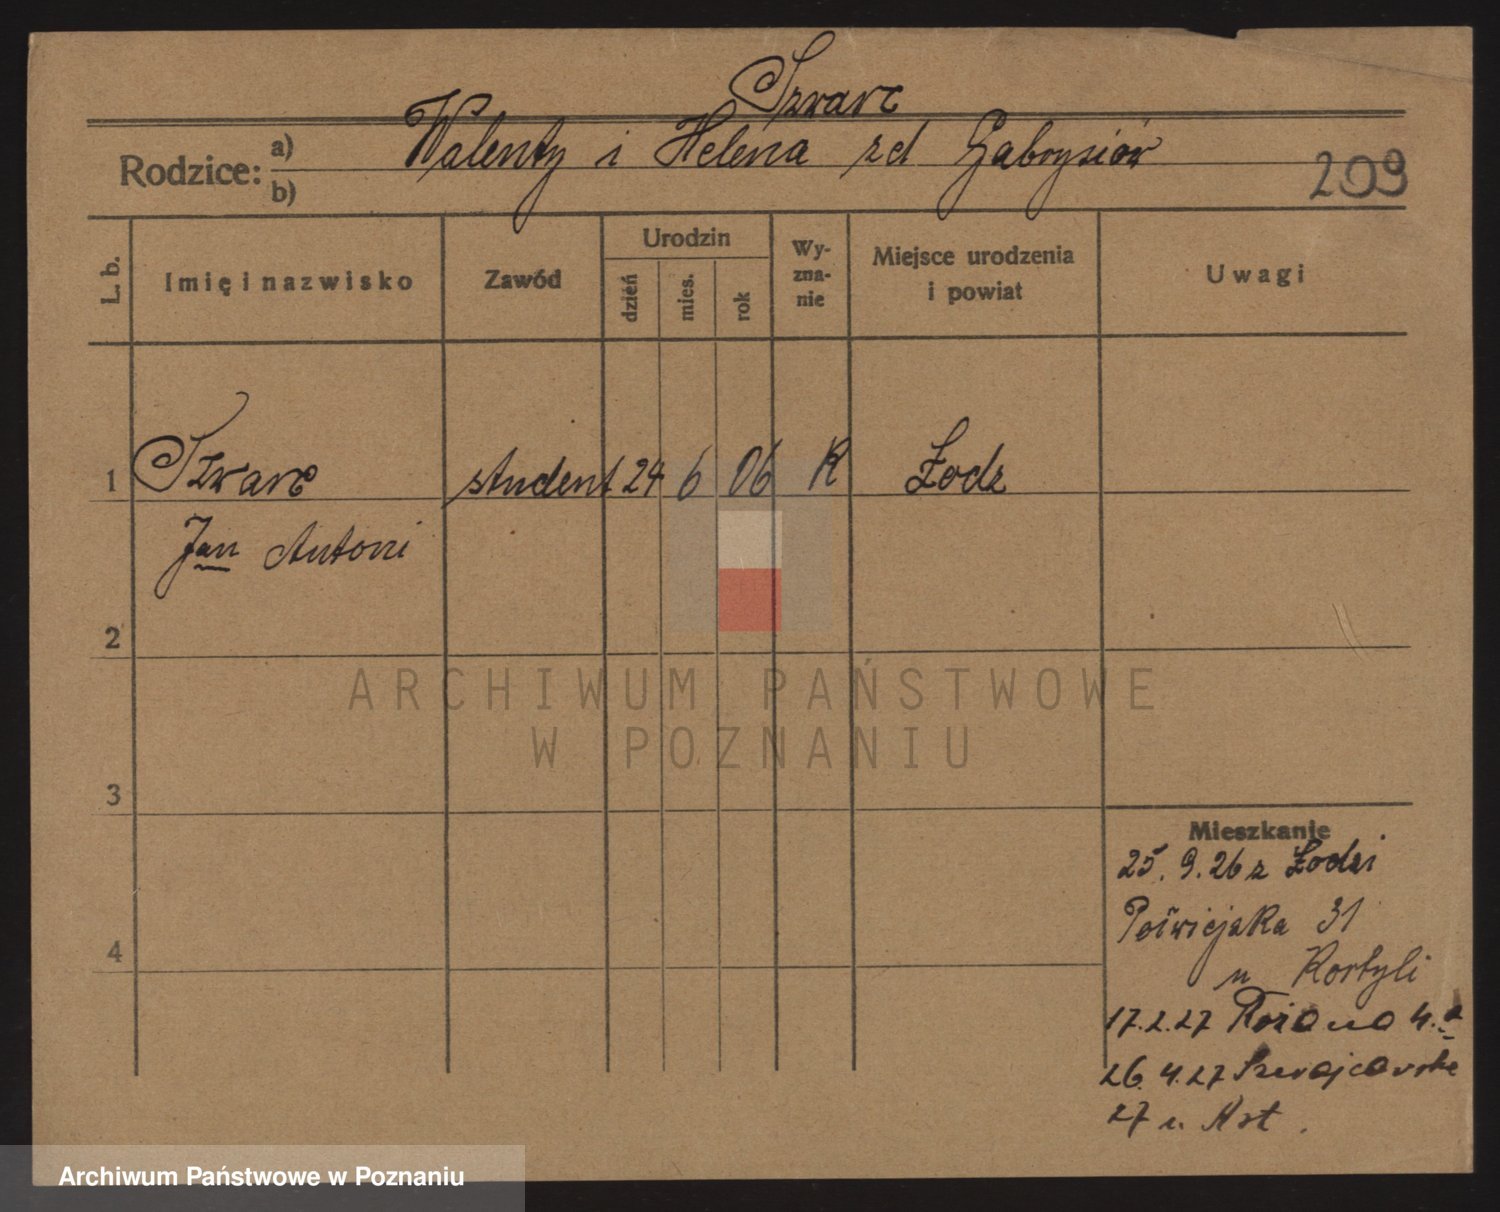 Szwarc
Walenty i Helena zd Gabrysiów
Rodzice: a)
b)
209
L. b.
Imię i nazwisko
Zawód
Urodzin
dzień
mies.
rok
Wy-
zna-
nie
Miejsce urodzenia
i powiat
Uwagi
1 Szwarc student 24 6 06 K Łodz
Jan Antoni
2
ARCHIWUM PAŃSTWOWE
W POZNANIU
3
4
Mieszkanie
25.9.26 z Łodzi
31
u
17.2.27 4.
26.4.27 Szwajcarska
27 u.
Archiwum Państwowe w Poznaniu